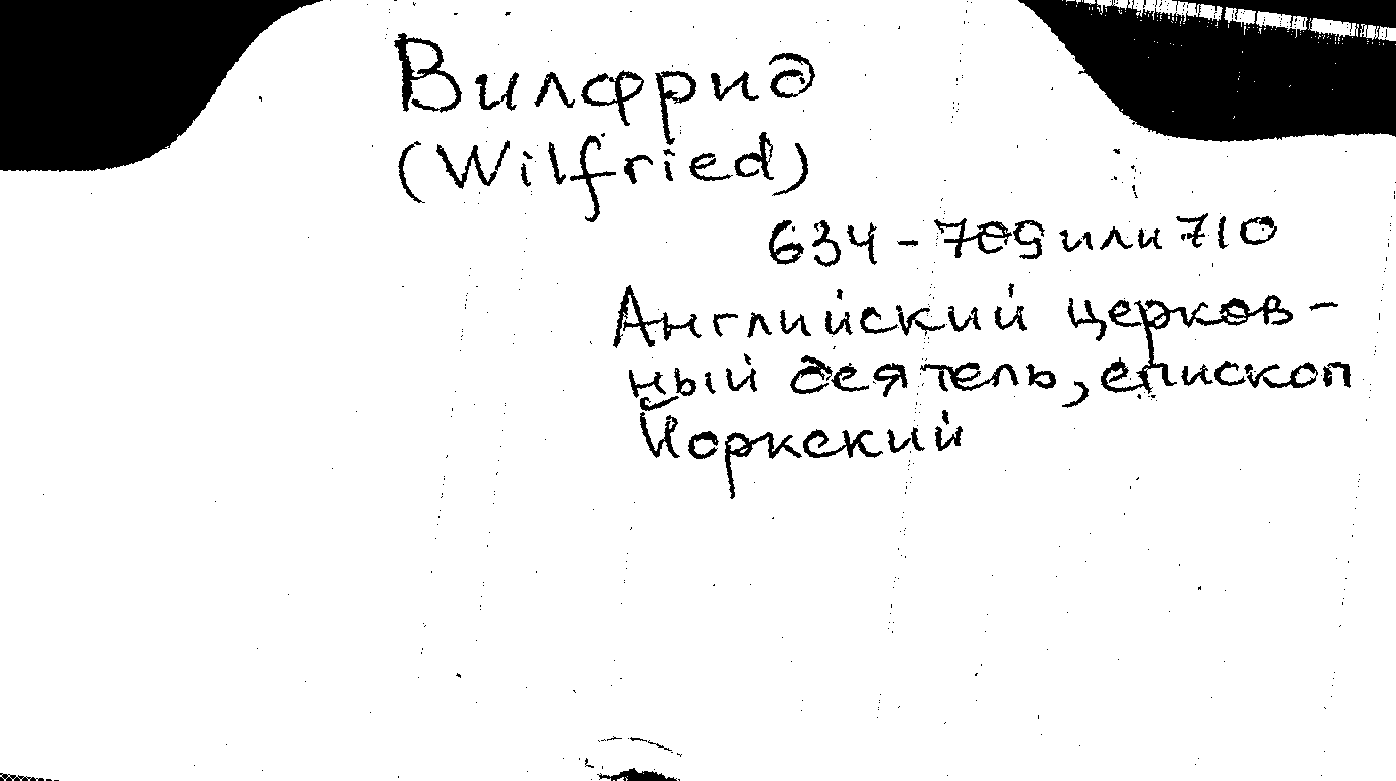 Вилфрид
(Wilfried)
634 - 709 или 710
Английский церков-
ный деятель, епископ
Йоркский